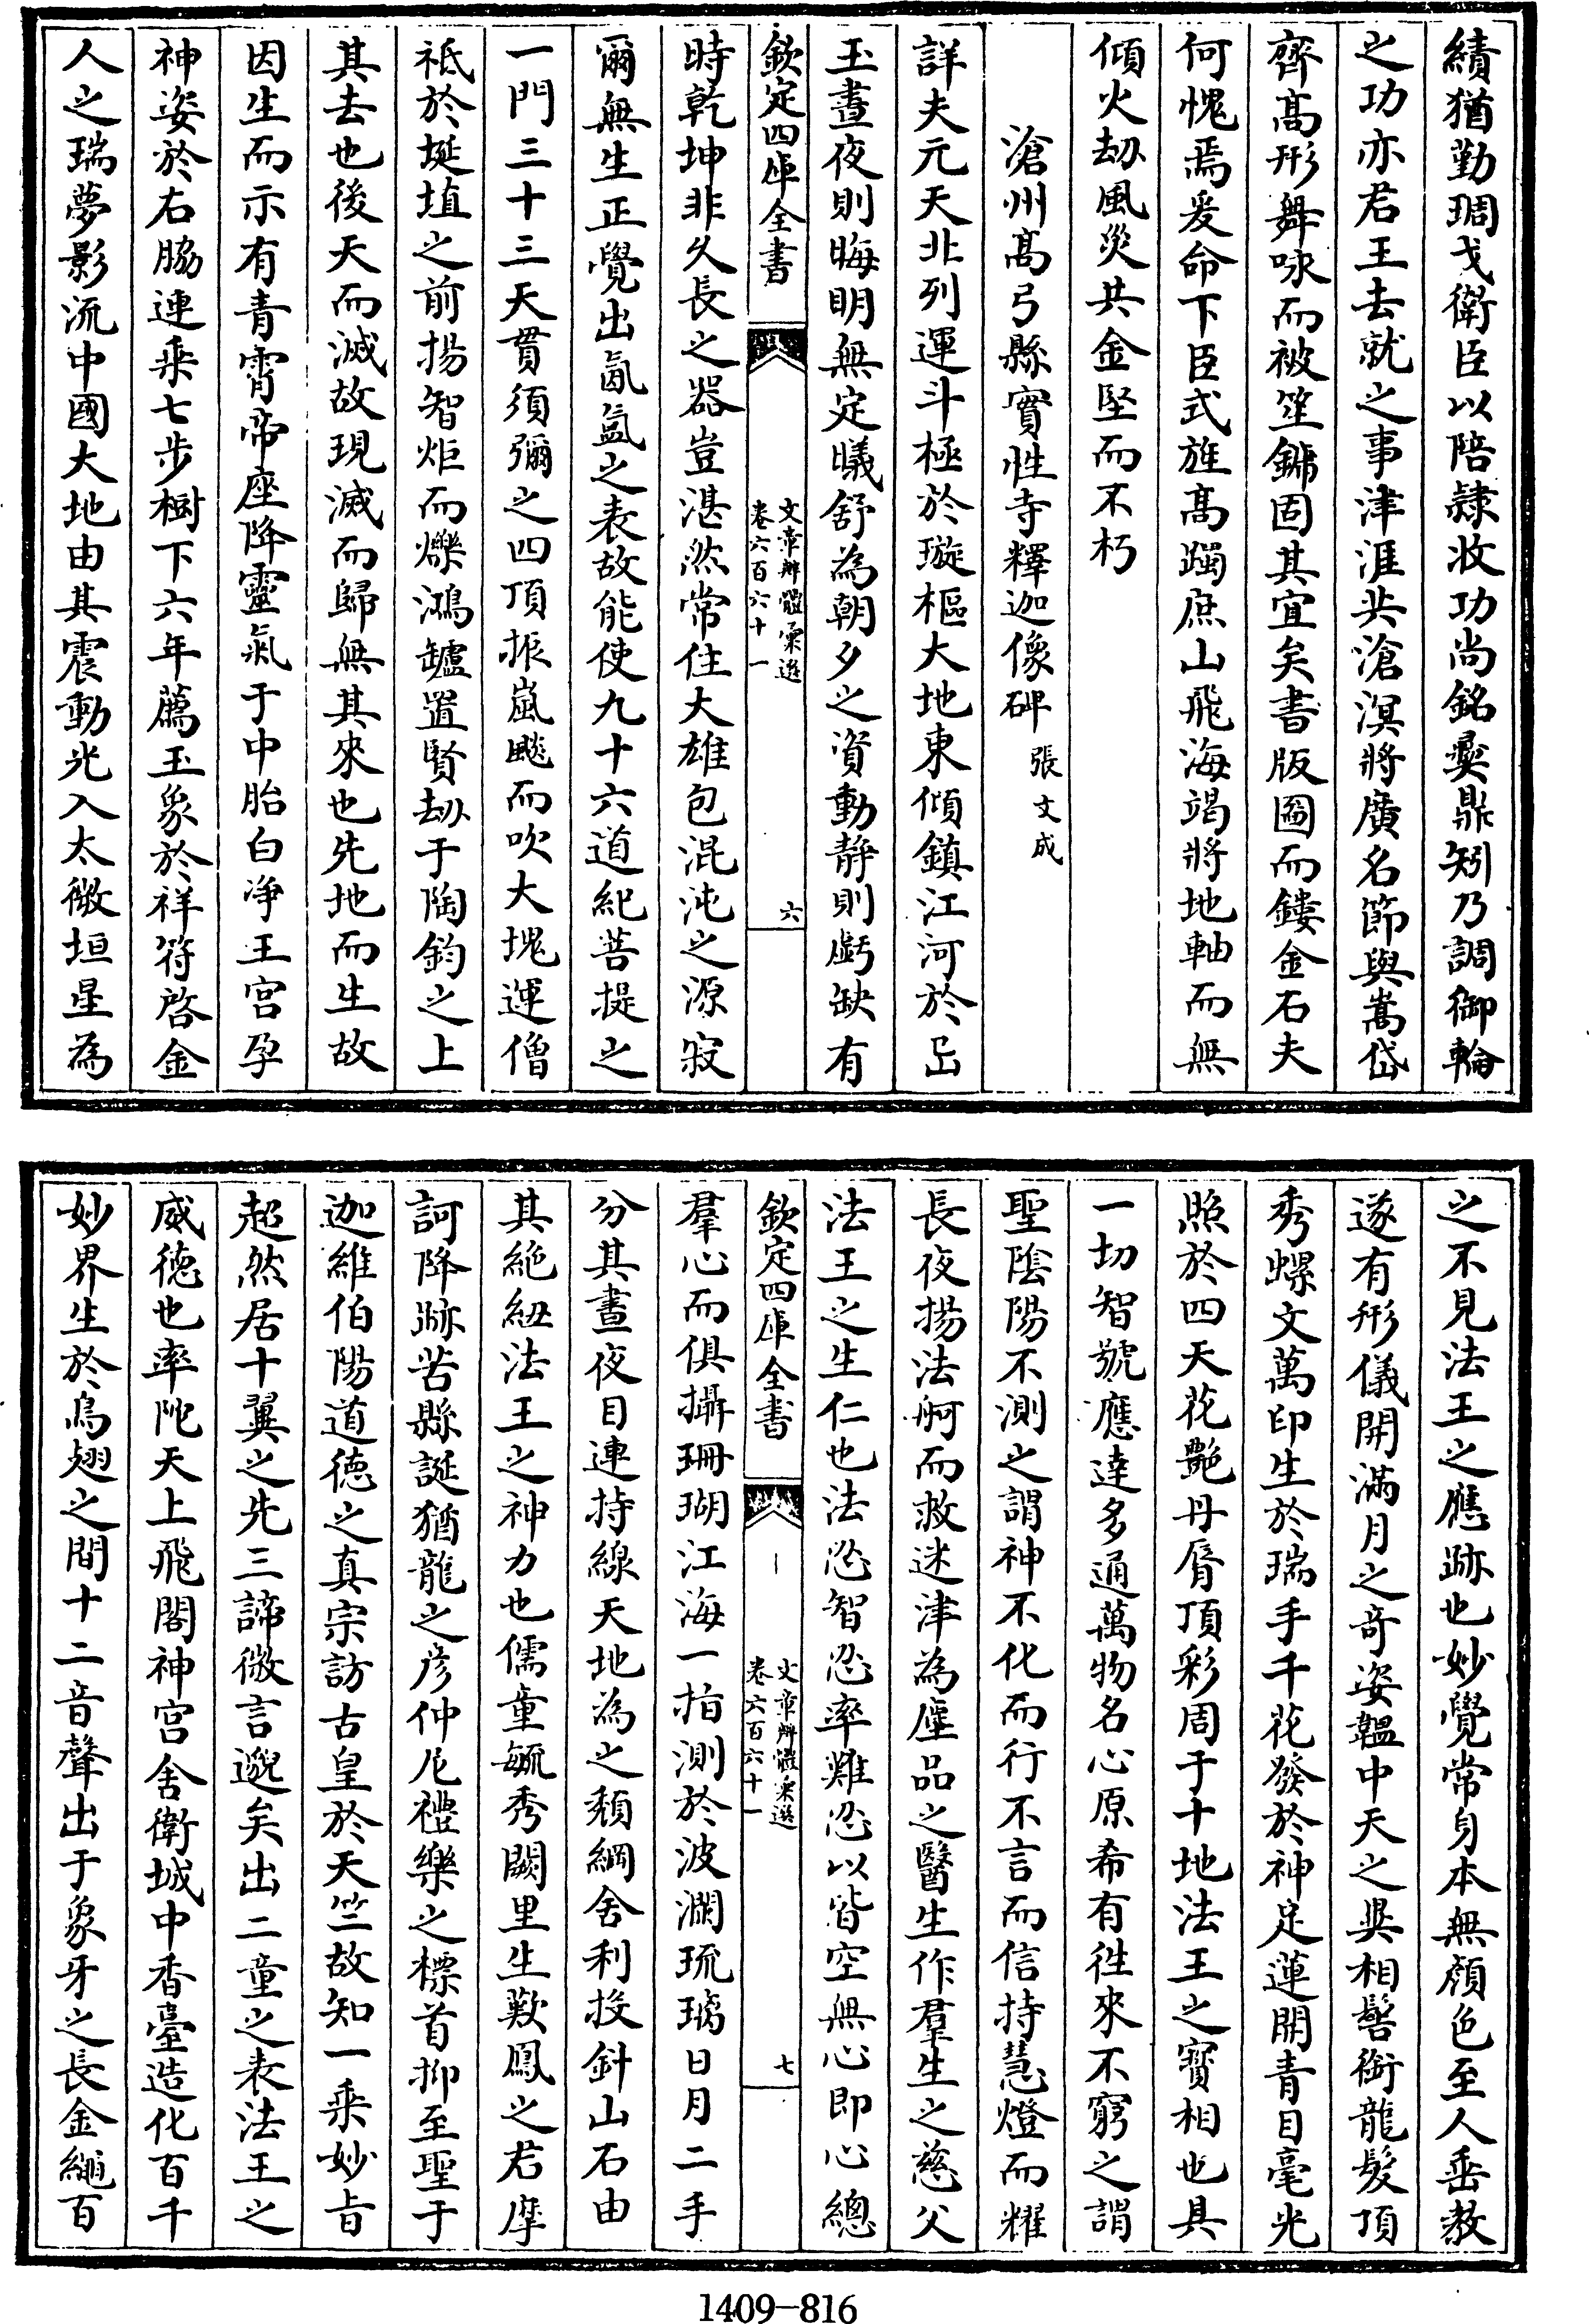 績猶勤琱戈衛臣以陪隷收功尚銘奠鼎矧乃調御輪
之功亦君王去就之事津涯共滄溟將廣名節與嵩岱
齊髙形舞咏而被笙鏞固其宜矣書版圖而鏤金石夫
何愧焉爰命下臣式旌髙躅庶山飛海竭將地軸而無
傾火刼風災共金堅而不朽
滄州髙弓縣實性寺釋迦像碑 張文成
詳夫元天北列運斗極於璇樞大地東傾鎮江河於
玉晝夜則晦明無定曦舒為朝夕之資動静則虧缺有
欽定四庫全書
文章辨體彚選
卷六百六十一
六
時乾坤非久長之器豈湛然常住大雄包混沌之源寂
爾無生正覺出氤氲之表故能使九十六道紀菩提之
一門三十三天貫須彌之四頂振嵐颷而吹大塊運僧
祗於埏埴之前揚智炬而爍鴻罏置賢刼于陶鈞之上
其去也後天而滅故現滅而歸無其來也先地而生故
因生而示有青霄帝座降靈氣于中胎白净王宫孕
神姿於右脇連乗七步樹下六年薦玉象於祥符啓金
人之瑞夢影流中國大地由其震動光入太微垣星為
之不見法王之應跡也妙覺常身本無顔色至人垂教
遂有形儀開滿月之奇姿韞中天之異相髻銜龍髮頂
秀螺文萬印生於瑞手千花發於神足蓮開青目毫光
照於四天花艶丹脣頂彩周于十地法王之寳相也具
一切智號應達多通萬物名心原希有徃來不窮之謂
聖隂陽不測之謂神不化而行不言而信持慧燈而耀
長夜揚法舸而救迷津為塵品之醫生作羣生之慈父
法王之生仁也法忍智忍率難忍以皆空無心即心總
欽定四庫全書
文章辨體彚選
卷六百六十一
七
羣心而俱攝珊瑚江海一指測於波瀾琉璃日月二手
分其晝夜目連持線天地為之頽綱舍利投針山石由
其絶紐法王之神力也儒童毓秀闕里生歎鳳之君摩
訶降跡苦縣誕猶龍之彦仲尼禮樂之標首抑至聖于
迦維伯陽道徳之真宗訪古皇於天竺故知一乗妙㫖
超然居十翼之先三諦微言邈矣出二童之表法王之
威徳也率陁天上飛閣神宫舍衛城中香臺造化百千
妙界生於鳥翅之間十二音聲出于象牙之長金繩百
1409-816